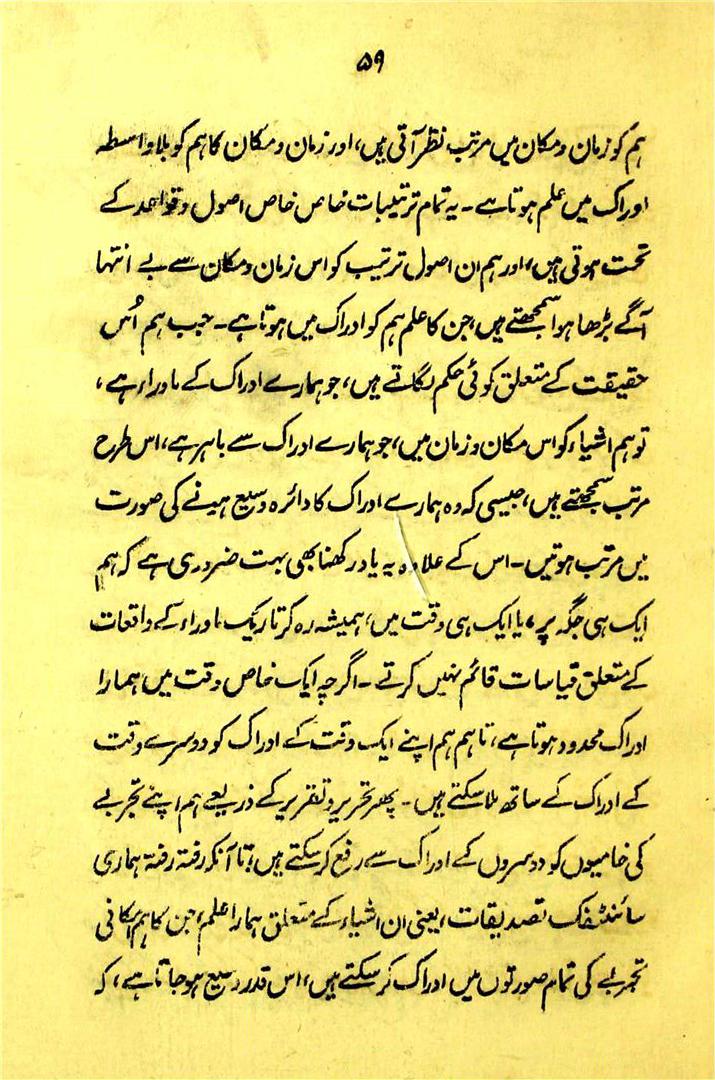 ۵۹
ہم کو زمان و مکان میں مرتب نظر آتی ہیں، اور زمان و مکان کا ہم کو بلا واسطہ
ادراک میں علم ہوتا ہے۔ یہ تمام ترتیبات خاص خاص اصول و قواعد کے
تحت ہوتی ہیں، اور ہم ان اصول ترتیب کو اس زمان و مکان سے بے انتہا
آگے بڑھا ہوا سمجھتے ہیں، جن کا علم ہم کو ادراک میں ہوتا ہے۔ جب ہم اُس
حقیقت کے متعلق کوئی حکم لگاتے ہیں، جو ہمارے ادراک کے ماوراء ہے،
تو ہم اشیاء کو اس مکان و زمان میں، جو ہمارے ادراک سے باہر ہے، اس طرح
مرتب سمجھتے ہیں، جیسی کہ وہ ہمارے ادراک کا دائرہ وسیع ہونے کی صورت
میں مرتب ہوتیں۔ اس کے علاوہ یہ یاد رکھنا بھی بہت ضروری ہے کہ ہم
ایک ہی جگہ پر، یا ایک ہی وقت میں، ہمیشہ رہ کر تاریک ماوراء کے واقعات
کے متعلق قیاسات قائم نہیں کرتے۔ اگرچہ ایک خاص وقت میں ہمارا
ادراک محدود ہوتا ہے، تاہم ہم اپنے ایک وقت کے ادراک کو دوسرے وقت
کے ادراک کے ساتھ ملا سکتے ہیں۔ پھر تحریر و تقریر کے ذریعے ہم اپنے تجربے
کی خامیوں کو دوسروں کے ادراک سے رفع کر سکتے ہیں، تا آنکہ رفتہ رفتہ ہماری
سائنٹفک تصدیقات، یعنی ان اشیاء کے متعلق ہمارا علم، جن کا ہم امکانی
تجربے کی تمام صورتوں میں ادراک کر سکتے ہیں، اس قدر وسیع ہو جاتا ہے، کہ